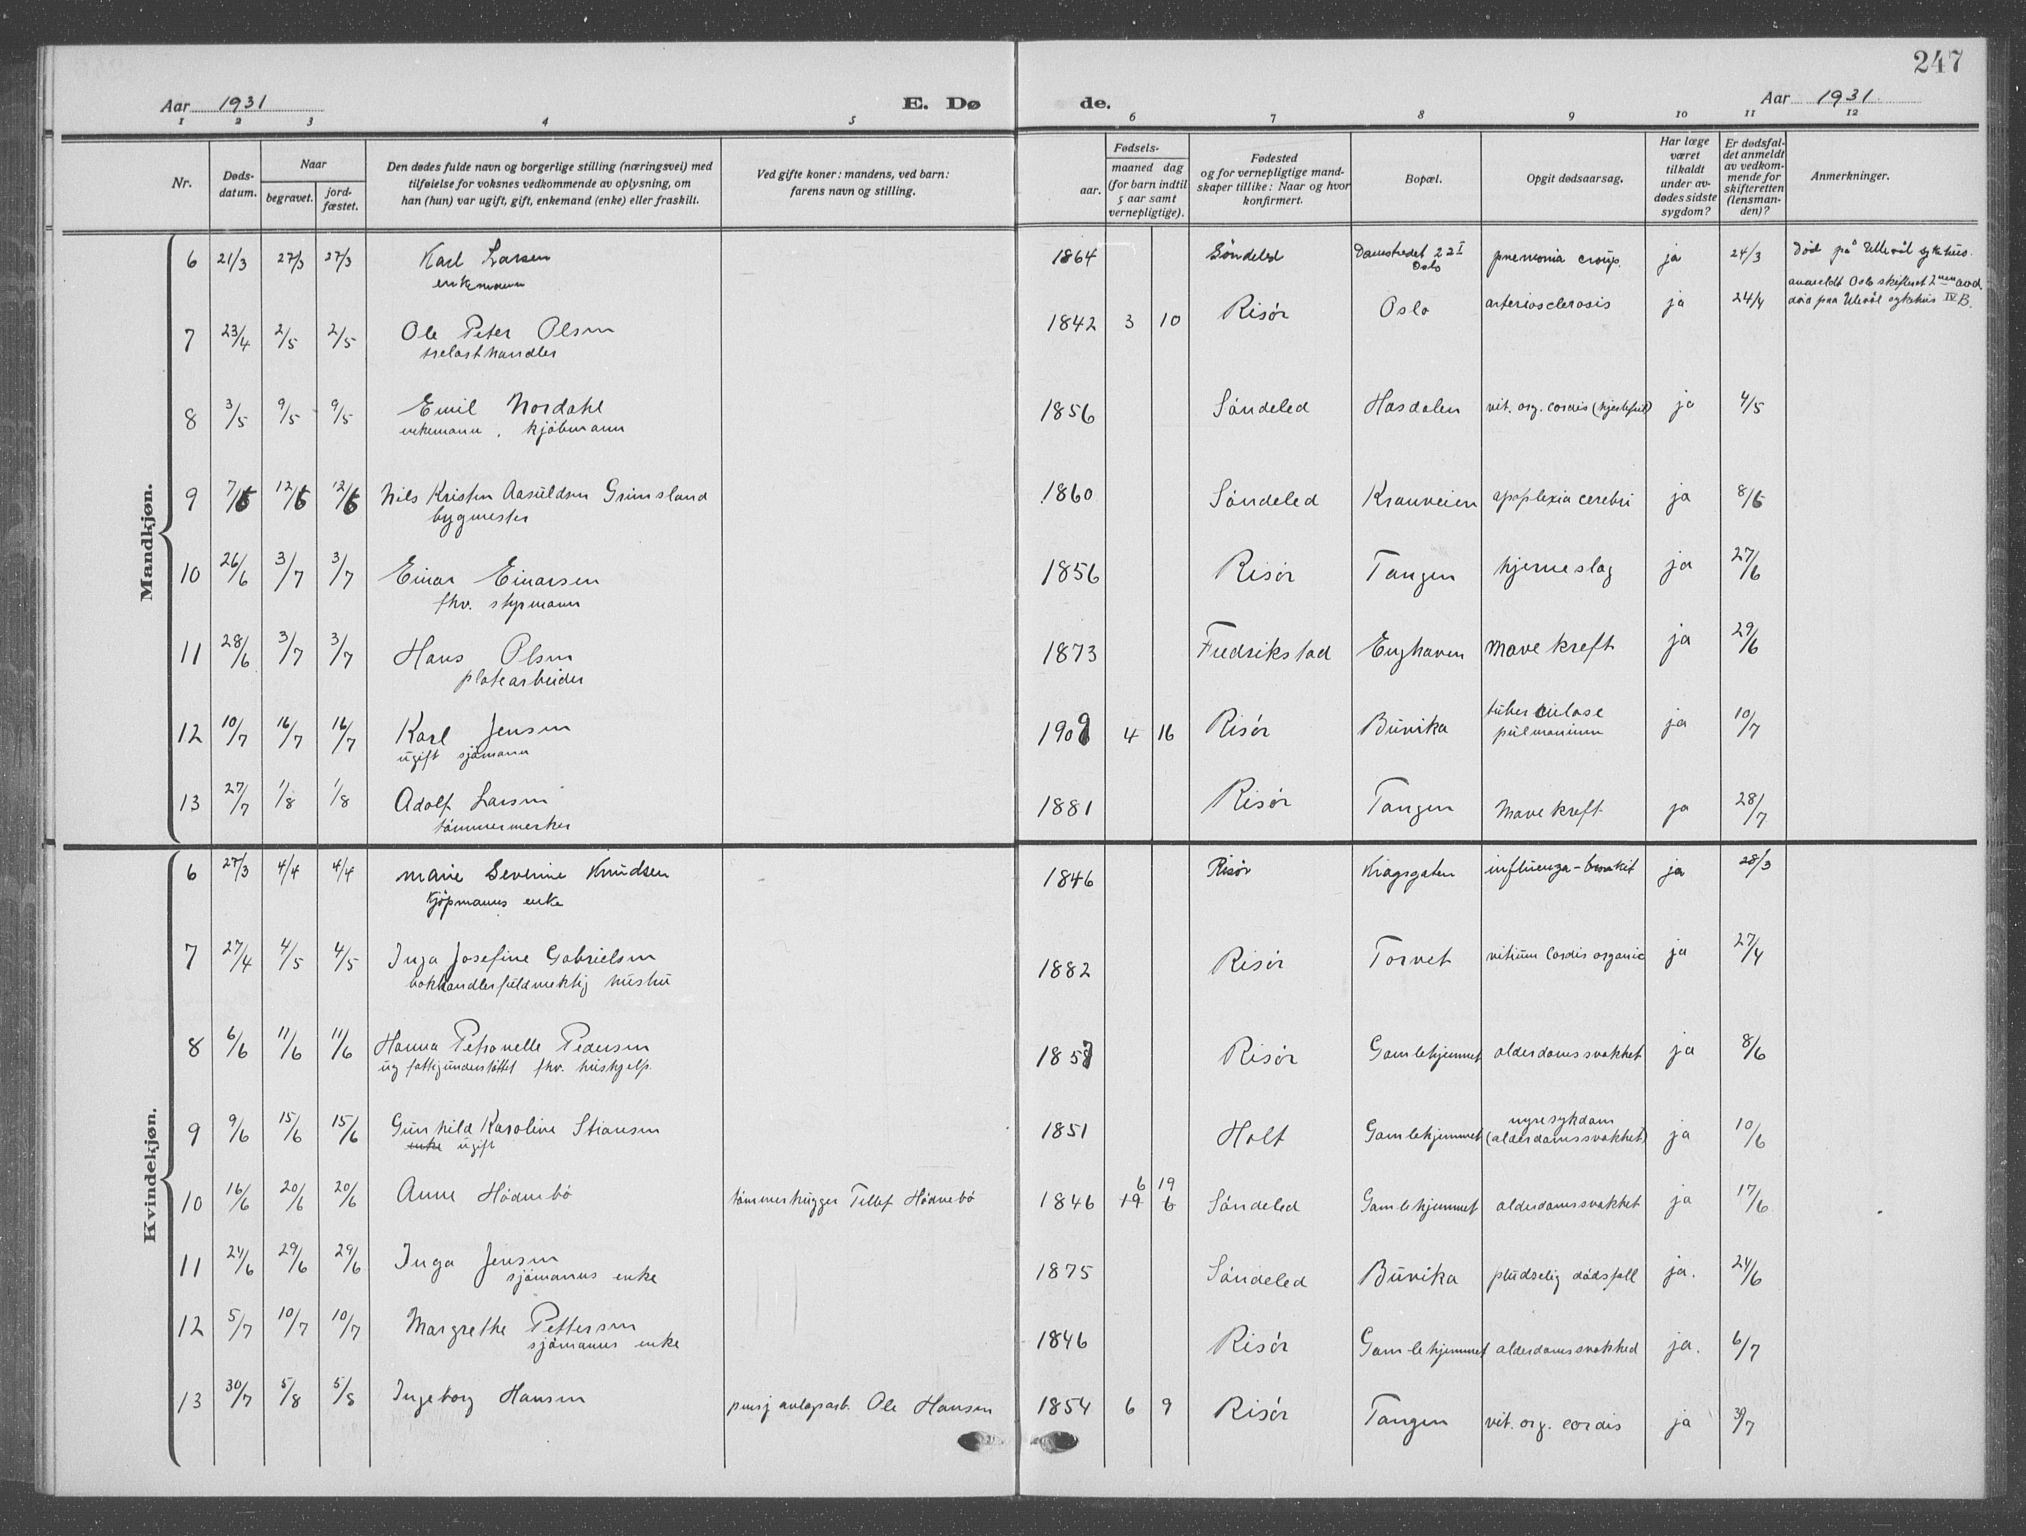 247
Aar 1931 E. Dø de. Aar 1931
1 2 3 4 5 6 7 8 9 10 11 12
Nr. | Døds-datum. | Naar begravet. | jord-fæstet. | Den dødes fulde navn og borgerlige stilling (næringsvei) med tilføielse for voksnes vedkommende av oplysning, om han (hun) var ugift, gift, enkemand (enke) eller fraskilt. | Ved gifte koner: mandens, ved barn: farens navn og stilling. | Fødsels- aar. | maaned dag (for barn indtil 5 aar samt vernepligtige). | Fødested og for vernepligtige mand-skaper tillike: Naar og hvor konfirmert. | Bopæl. | Opgit dødsaarsag. | Har læge været tilkaldt under av-dødes sidste sygdom? | Er dødsfal-det anmeldt av vedkom-mende for skifteretten (lensman-den)? | Anmerkninger.
Mandkjøn.
6 21/3 27/3 27/3 Karl Larsen enkemann 1864 Søndeled Damstredet 22 I Oslo pnemonia croup. ja 24/3 Død på Ullevål sykehus. anmeldt Oslo skifteret 2nen avd.
7 23/4 2/5 2/5 Ole Peter Olsen trelasthandler 1842 3 10 Risør Oslo arteriosclerosis ja 24/4 død paa Ulevål sykehus IV B.
8 3/5 9/5 9/5 Emil Nordahl enkemann, kjøbmann 1856 Søndeled Hasdalen vit. org. cordis (hjertefeil) ja 4/5
9 7/6 12/6 12/6 Nils Kristen Aasuldsen Grimsland bygmester 1860 Søndeled Kranveien apoplexia cerebri ja 8/6
10 26/6 3/7 3/7 Einar Einarsen fhv. styrmann 1856 Risør Tangen hjerneslag ja 27/6
11 28/6 3/7 3/7 Hans Olsen platearbeider 1873 Fredrikstad Enghaven Mavekreft ja 29/6
12 10/7 16/7 16/7 Karl Jensen ugift sjømann 1909 4 16 Risør Buvika tuberculose pulmonum ja 10/7
13 27/7 1/8 1/8 Adolf Larsen tømmermerker 1881 Risør Tangen Mavekreft ja 28/7
Kvindekjøn.
6 27/3 4/4 4/4 Marie Severine Knudsen Kjøpmanns enke 1846 Risør Kragsgaten influenza-bronkit ja 28/3
7 27/4 4/5 4/5 Inga Josefine Gabrielsen bokhandlerfuldmektig hustru 1882 Risør Torvet vitium Cordis organic ja 27/4
8 6/6 11/6 11/6 Hanna Petronelle Pedersen ug fattigunderstøttet fhv. hushjelp. 1857 Risør Gamlehjemmet alderdomssvakhet ja 8/6
9 9/6 15/6 15/6 Gunhild Karoline Stiansen enke ugift 1851 Holt Gamlehjemmet nyresykdom (alderdomssvakhet) ja 10/6
10 16/6 20/6 20/6 Anne Hødnebø tømmerhugger Tellef Hødnebø 1846 6 19 19 6 Søndeled Gamlehjemmet alderdomssvakhet ja 17/6
11 24/6 29/6 29/6 Inga Jensen sjømanns enke 1875 Søndeled Buvika pludselig dødsfall ja. 24/6
12 5/7 10/7 10/7 Margrethe Pettersen sjømanns enke 1846 Risør Gamlehjemmet alderdomssvakhed ja. 6/7
13 30/7 5/8 5/8 Ingeborg Hansen pensj anlagsarb. Ole Hansen 1854 6 9 Risør Tangen vit. org. cordis ja 30/7